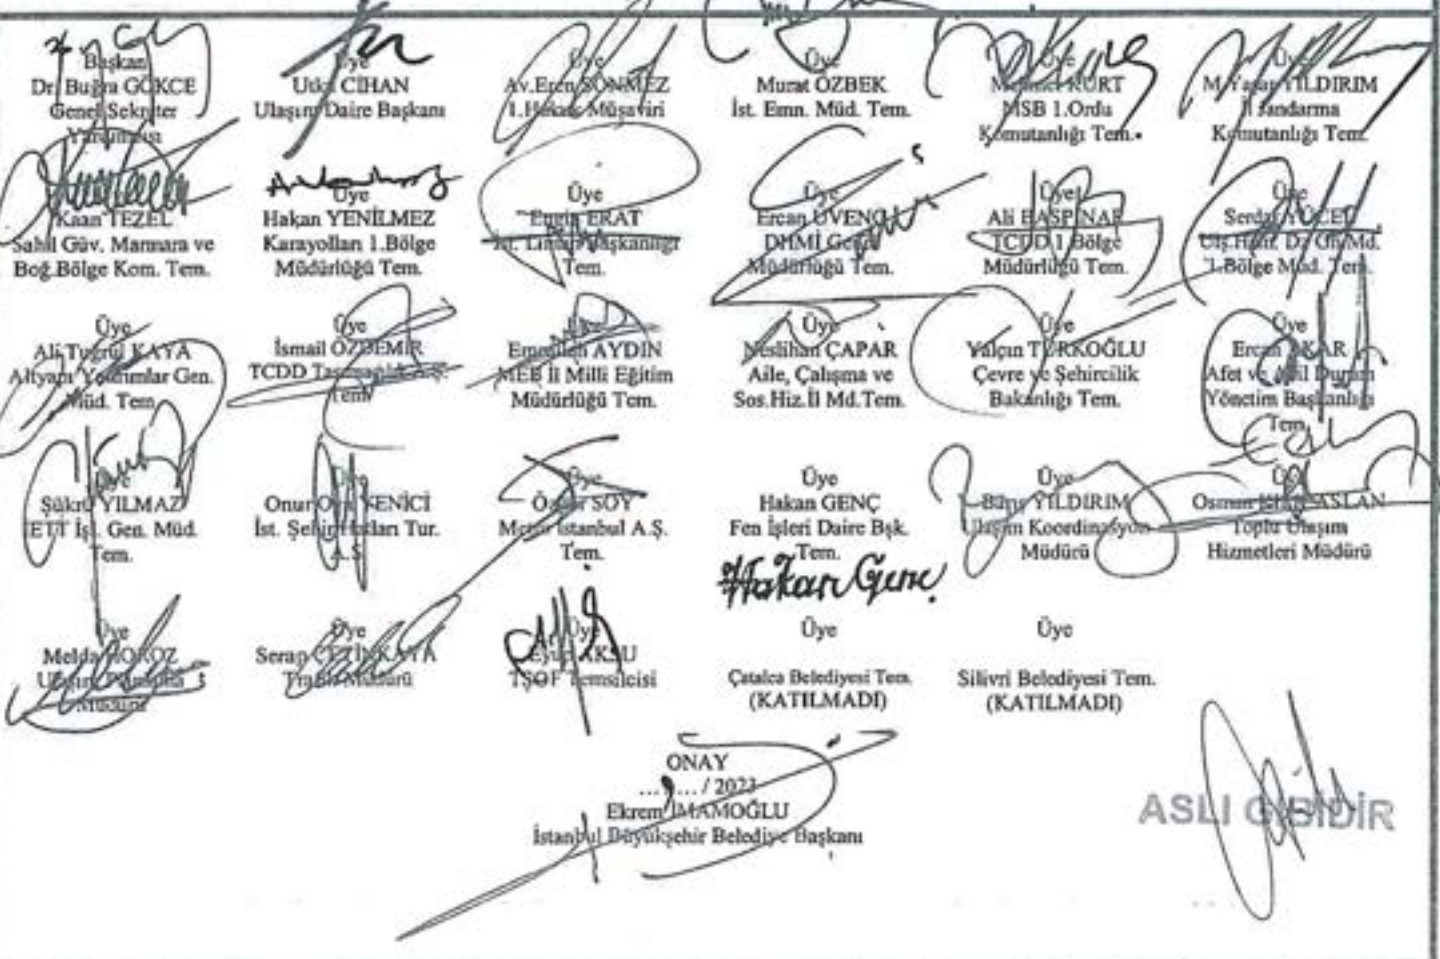 Başkan
Dr. Buğra GÖKCE
Genel Sekreter
Yardımcısı
Üye
Utku CİHAN
Ulaşım Daire Başkanı
Üye
Av.Eren SÖNMEZ
1.Hukuk Müşaviri
Üye
Murat ÖZBEK
İst. Emn. Müd. Tem.
Üye
KURT
MSB 1.Ordu
Komutanlığı Tem.
Üye
M.Yaşar YILDIRIM
İl Jandarma
Komutanlığı Tem.
Kaan TEZEL
Sahil Güv. Marmara ve
Boğ.Bölge Kom. Tem.
Üye
Hakan YENİLMEZ
Karayolları 1.Bölge
Müdürlüğü Tem.
Üye
Engin ERAT
İst. Liman Başkanlığı
Tem.
Üye
Ercan
DHMİ Genel
Müdürlüğü Tem.
Üye
Ali BAŞPINAR
TCDD 1.Bölge
Müdürlüğü Tem.
Üye
Serdar YÜCEL
1.Bölge Müd. Tem.
Üye
Ali Tuğrul KAYA
Altyapı Yatırımlar Gen.
Müd. Tem.
Üye
İsmail ÖZDEMİR
TCDD Taşımacılık A.Ş.
Tem.
AYDIN
MEB İl Milli Eğitim
Müdürlüğü Tem.
Üye
Neslihan ÇAPAR
Aile, Çalışma ve
Sos.Hiz.İl Md.Tem.
Üye
Yalçın TÜRKOĞLU
Çevre ve Şehircilik
Bakanlığı Tem.
Üye
Ercan AKAR
Afet ve Acil Durum
Yönetim Başkanlığı
Tem.
Üye
Şükrü YILMAZ
İETT İşl. Gen. Müd.
Tem.
Üye
Onur YENİCİ
İst. Şehir Hatları Tur.
A.Ş.
Üye
SOY
Metro İstanbul A.Ş.
Tem.
Üye
Hakan GENÇ
Fen İşleri Daire Bşk.
Tem.
Hakan Genç
Üye
Barış YILDIRIM
Ulaşım Koordinasyon
Müdürü
Üye
Osman ASLAN
Toplu Ulaşım
Hizmetleri Müdürü
Üye
Melda HOROZ
Ulaşım Planlama
Müdürü
Üye
Serap ÇETİNKAYA
Trafik Müdürü
Üye
Eyüp AKSU
TŞOF Temsilcisi
Üye
Çatalca Belediyesi Tem.
(KATILMADI)
Üye
Silivri Belediyesi Tem.
(KATILMADI)
ONAY
/ 2023
Ekrem İMAMOĞLU
İstanbul Büyükşehir Belediye Başkanı
ASLI GİBİDİR